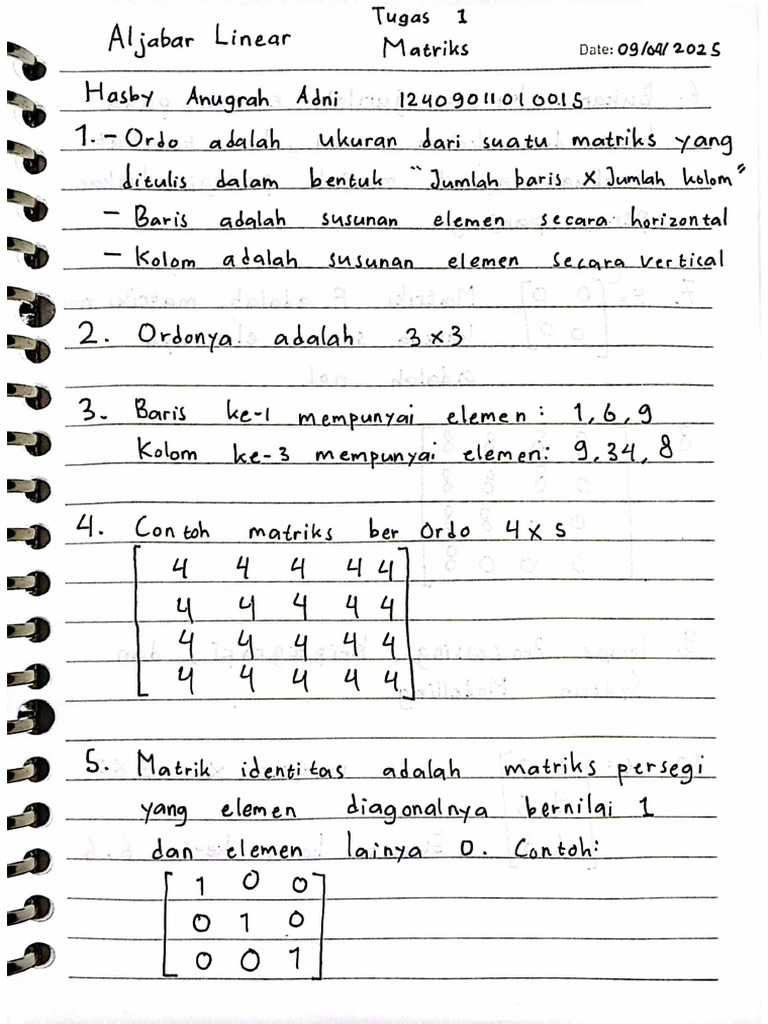 Tugas 1
Aljabar Linear
Matriks
Date: 09/04/2025
Hasby Anugrah Adni 12409011010015
1. - Ordo adalah ukuran dari suatu matriks yang
ditulis dalam bentuk "Jumlah baris x Jumlah kolom"
- Baris adalah susunan elemen secara horizontal
- Kolom adalah susunan elemen secara vertical
2. Ordonya adalah 3 x 3
3. Baris ke-1 mempunyai elemen : 1, 6, 9
Kolom ke-3 mempunyai elemen: 9, 34, 8
4. Contoh matriks ber Ordo 4 x 5
4 4 4 4 4
4 4 4 4 4
4 4 4 4 4
4 4 4 4 4
5. Matrik identitas adalah matriks persegi
yang elemen diagonalnya bernilai 1
dan elemen lainya 0. Contoh:
1 0 0
0 1 0
0 0 1